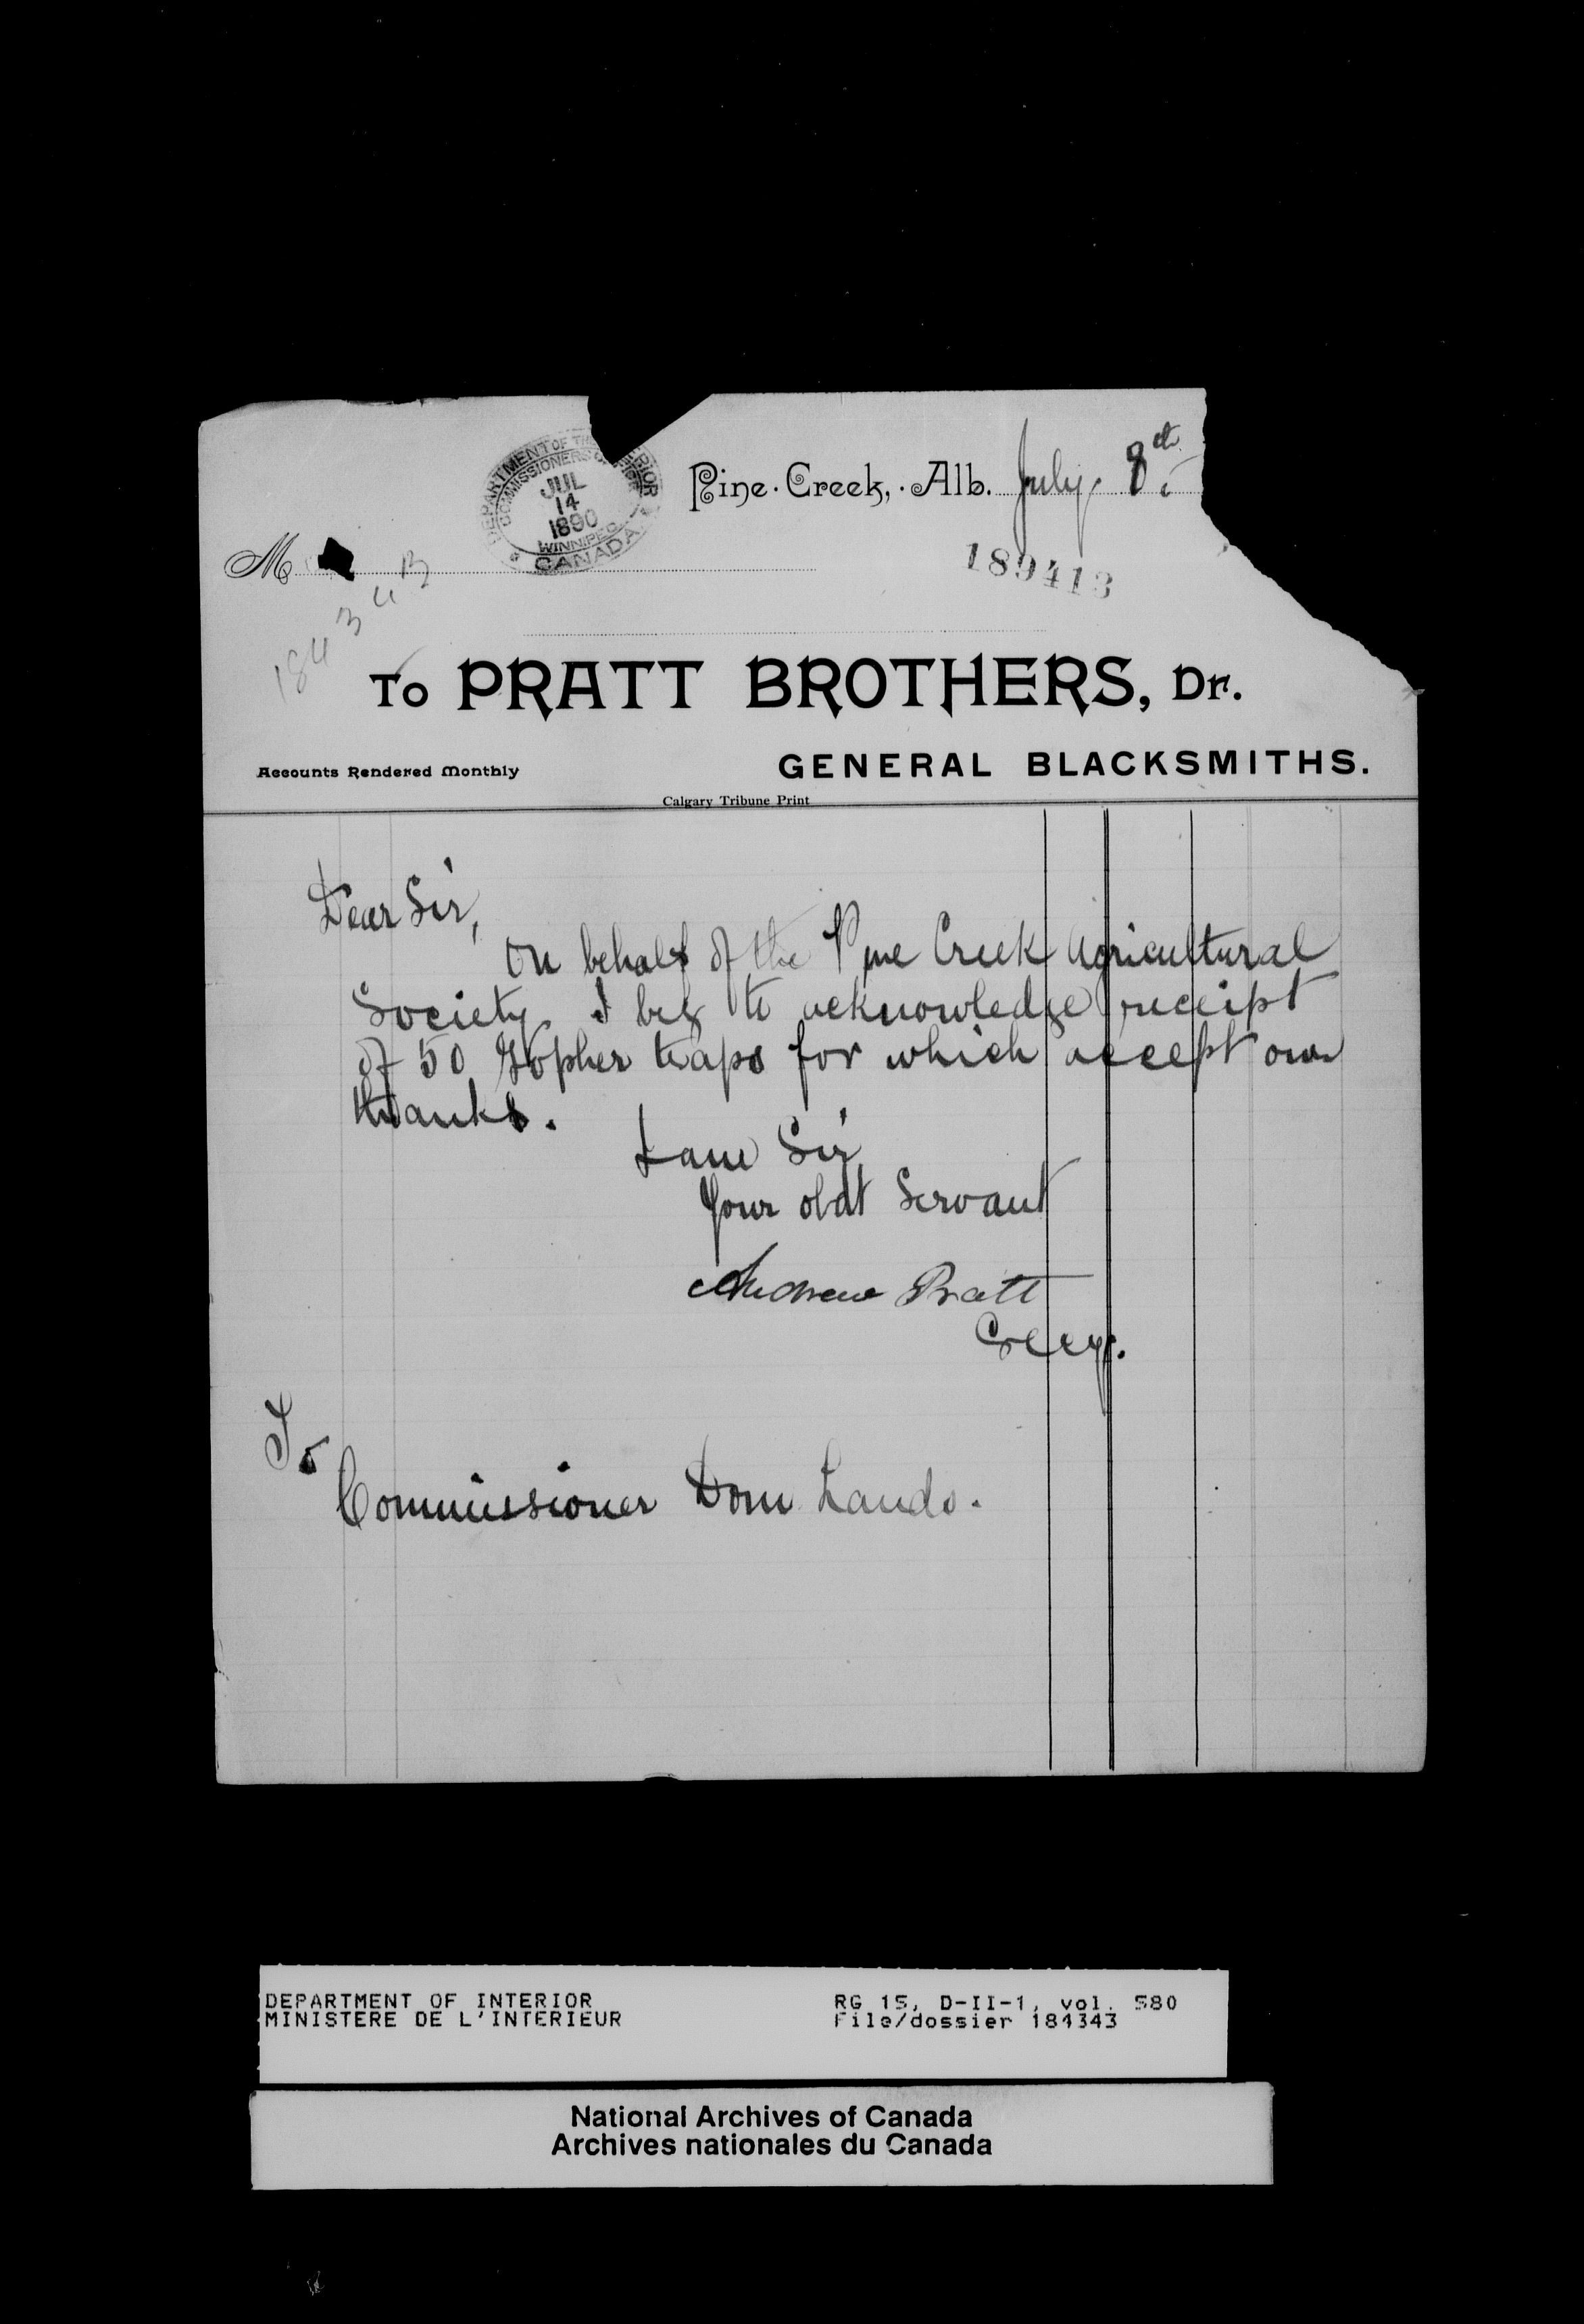 DEPARTMENT OF THE INTERIOR
COMMISSIONERS
JUL
14
1890
WINNIPEG
CANADA
Pine Creek, Alb. July 8th
M
189413
184343
To PRATT BROTHERS, Dr.
Accounts Rendered Monthly GENERAL BLACKSMITHS.
Calgary Tribune Print
Dear Sir,
On behalf of the Pine Creek Agricultural
Society I beg to acknowledge receipt
of 50 Gopher traps for which accept our
thanks.
I am Sir
Your obdt Servant
Andrew Pratt
Secy.
To
Commissioner Dom Lands.
DEPARTMENT OF INTERIOR
MINISTERE DE L'INTERIEUR
RG 15, D-II-1, vol. 580
File/dossier 184343
National Archives of Canada
Archives nationales du Canada